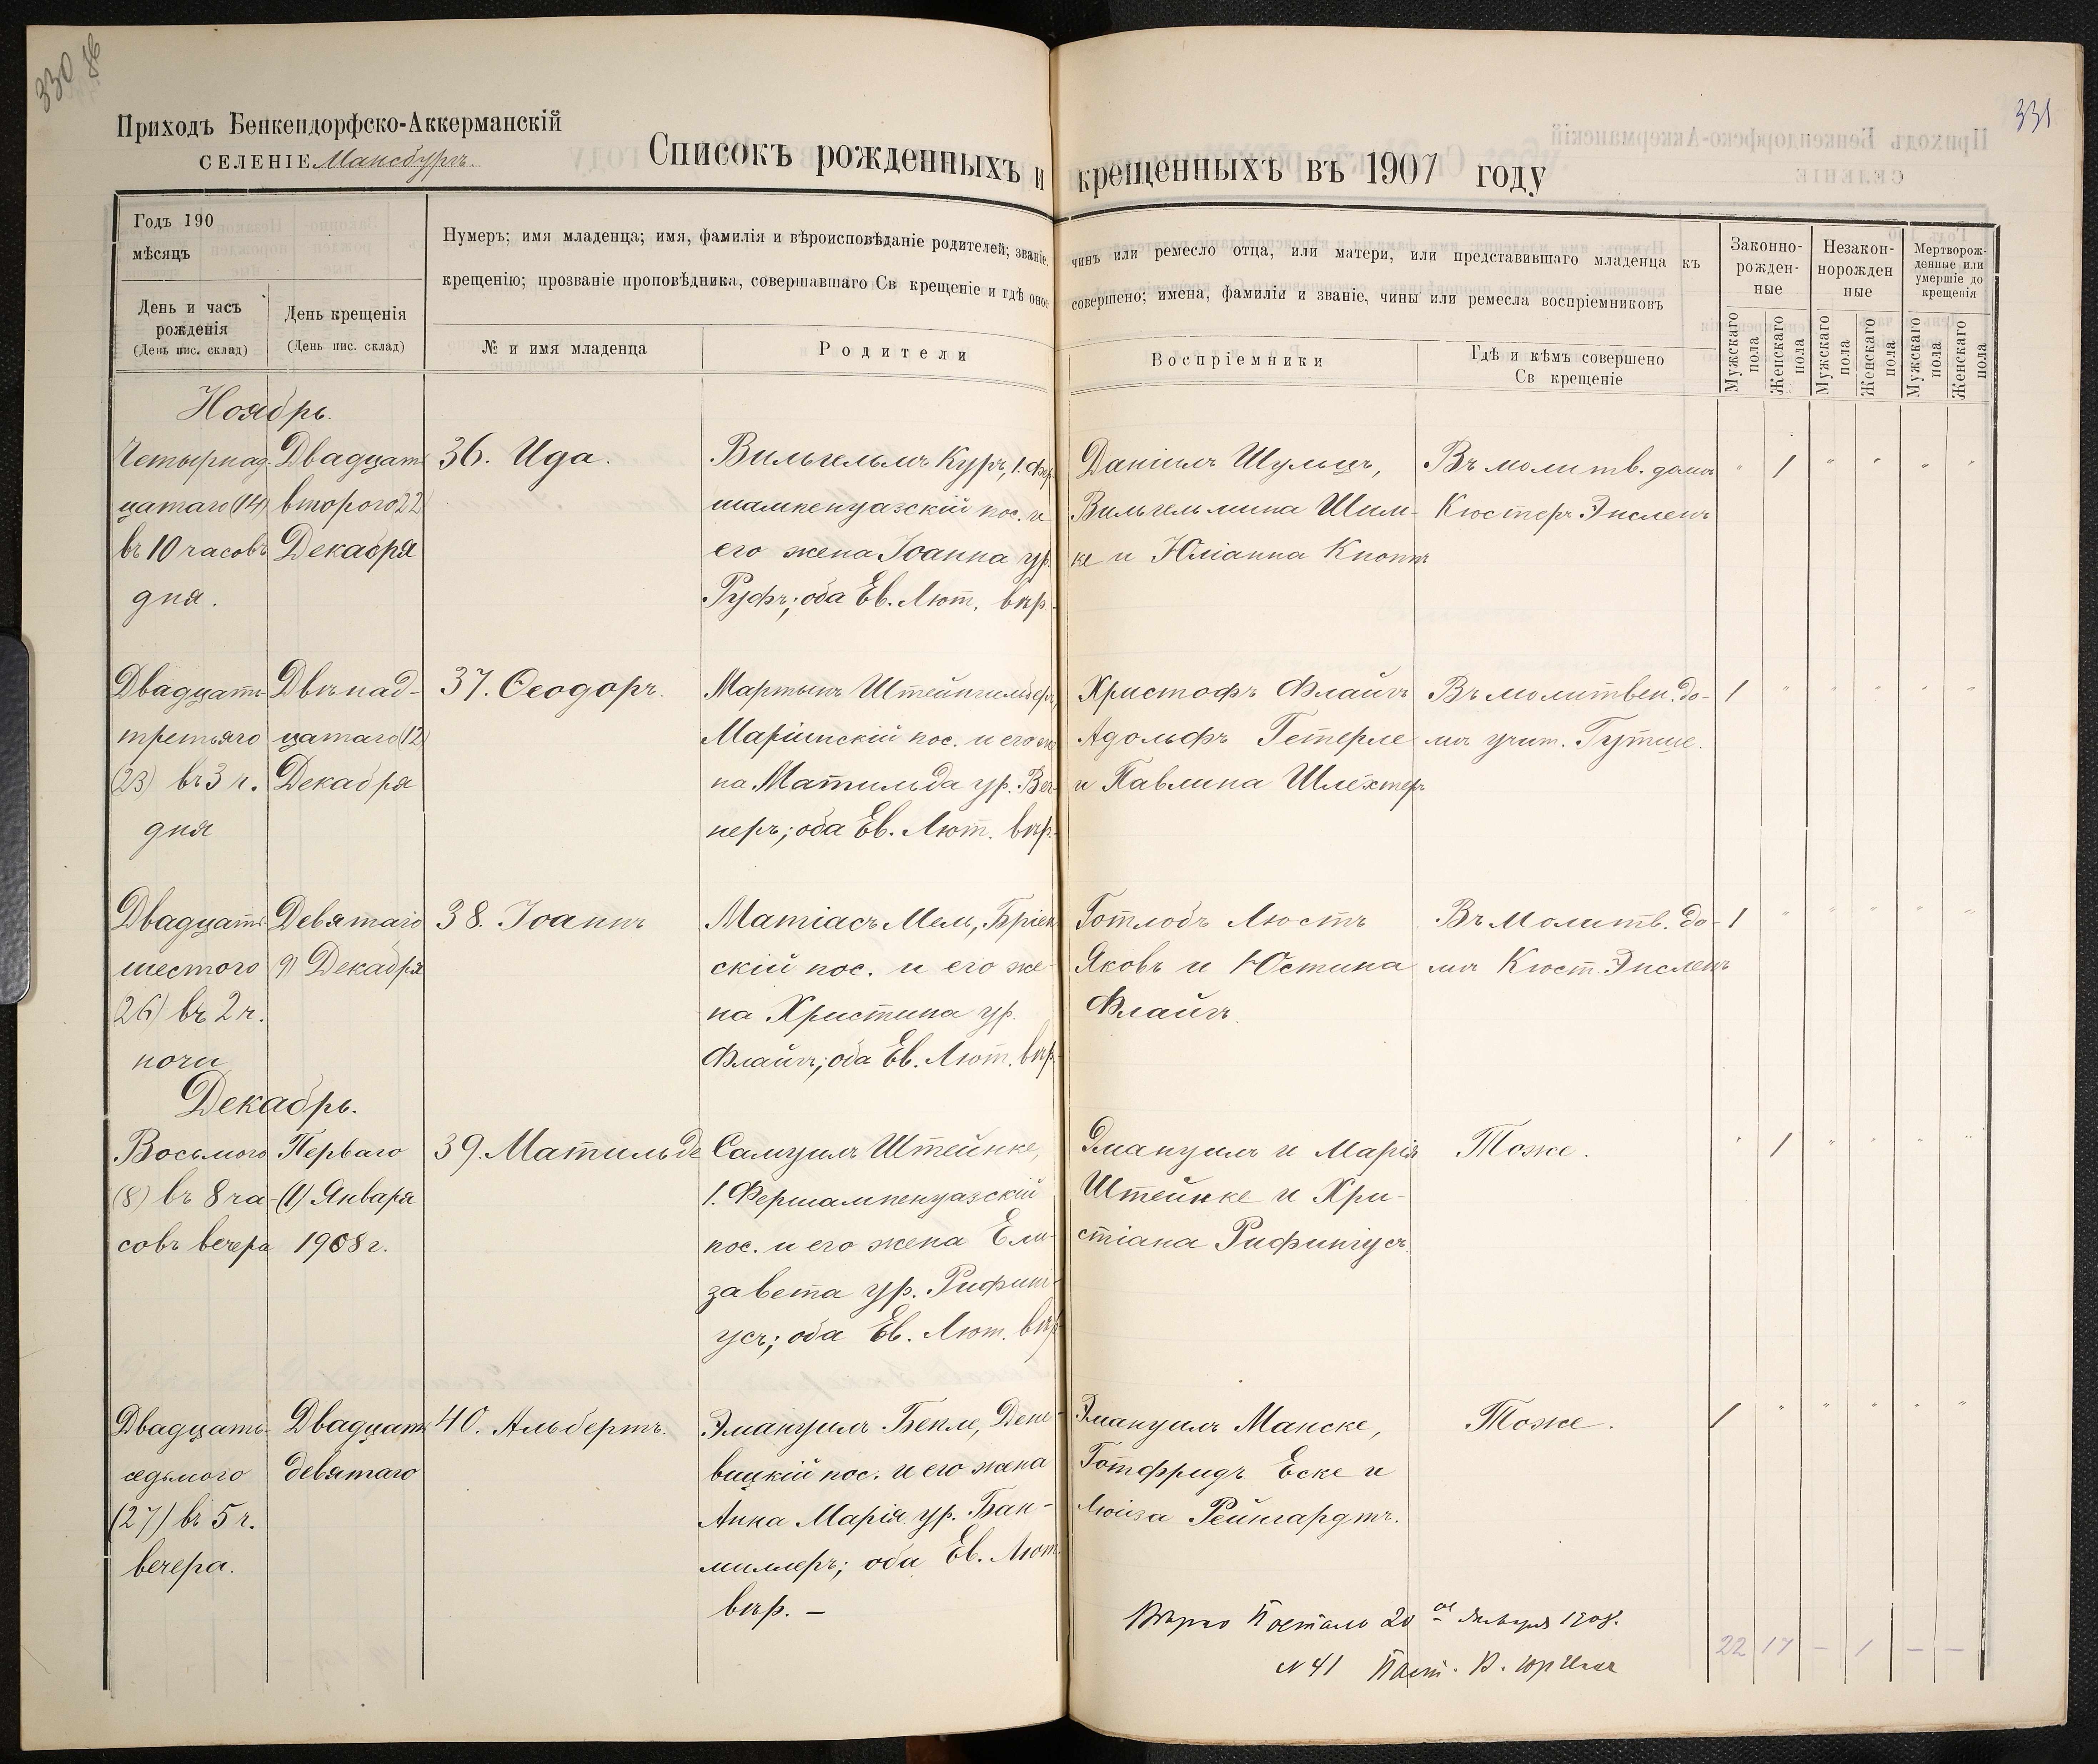 330
331
Приходъ Бенкендорфско-Аккерманскій
СЕЛЕНІЕ Мансбургъ
Списокъ рожденныхъ и крещенныхъ въ 1907 году
Годъ 190
мѣсяцъ
День и часъ
рожденія
(День пис. склад)
День крещенія
(День пис. склад)
Нумеръ; имя младенца; имя, фамилія и вѣроисповѣданіе родителей; званіе, чинъ или ремесло отца, или матери, или представившаго младенца къ
крещенію; прозваніе проповѣдника, совершавшаго Св крещеніе и гдѣ оное совершено; имена, фамиліи и званіе, чины или ремесла воспріемниковъ
№ и имя младенца
Родители
Воспріемники
Гдѣ и кѣмъ совершено
Св крещеніе
Законно-
рожден-
ные
Незакон-
норожден
ные
Мертворож-
денные или
умершіе до
крещенія
Мужскаго
пола
Женскаго
пола
Мужскаго
пола
Женскаго
пола
Мужскаго
пола
Женскаго
пола
Ноябрь.
Четырнад-
цатаго (14)
въ 10 часовъ
дня.
Двадцать
второго 22
Декабря
36. Ида.
Вильгельмъ Куръ, 1. Фер-
шампенуазскій пос. и
его жена Іоанна ур.
Руфъ; оба Ев. Лют. вѣр.
Даніилъ Шульцъ,
Вильгельмина Шим-
ке и Юліанна Кноппъ
Въ молитв. домѣ
Кюстеръ Энсленъ
" 1 " " " "
Двадцать
третьяго
(23) въ 3 ч.
дня
Двѣнад-
цатаго (12)
Декабря
37. Ѳеодоръ.
Мартынъ Штейнгильберъ,
Маріинскій пос. и его же-
на Матильда ур. Вег-
неръ; оба Ев. Лют. вѣр.
Христофъ Флайгъ
Адольфъ Гетерле
и Павлина Шлехтеръ
Въ молитвен. до-
мѣ учит. Гутше.
1 " " " " "
Двадцать
шестого
(26) въ 2 ч.
ночи
Девятаго
9) Декабря
38. Іоаннъ
Матіасъ Мем, Бріен-
скій пос. и его же-
на Христина ур.
Флайгъ; оба Ев. Лют. вѣр.
Готлобъ Люстъ
Яковъ и Юстина
Флайгъ.
Въ Молитв. до-
мѣ Кюст. Энсленъ
1 " " " " "
Декабрь.
Восьмого
(8) въ 8 ча-
совъ вечера
Перваго
(1) Января
1908 г.
39. Матильда
Самуилъ Штейнке,
1. Фершампенуазскій
пос. и его жена Ели-
завета ур. Рифинi-
усъ; оба Ев. Лют. вѣр.
Эмануилъ и Марія
Штейнке и Хри-
стіана Рифингусъ.
Тоже.
" 1 " " " "
Двадцать
седьмого
(27) въ 5 ч.
вечера.
Двадцать
девятаго
40. Альбертъ.
Эмануилъ Бекле, Дене-
вицкій пос. и его жена
Анна Марія ур. Бан-
миллеръ; оба Ев. Лют.
вѣр. –
Эмануилъ Манске,
Готфридъ Еске и
Люиза Рейнгардтъ.
Тоже.
1 " " " " "
Вѣрно Посталь 20 го Января 1908.
№ 41 Паст.
22 17 – 1 – –